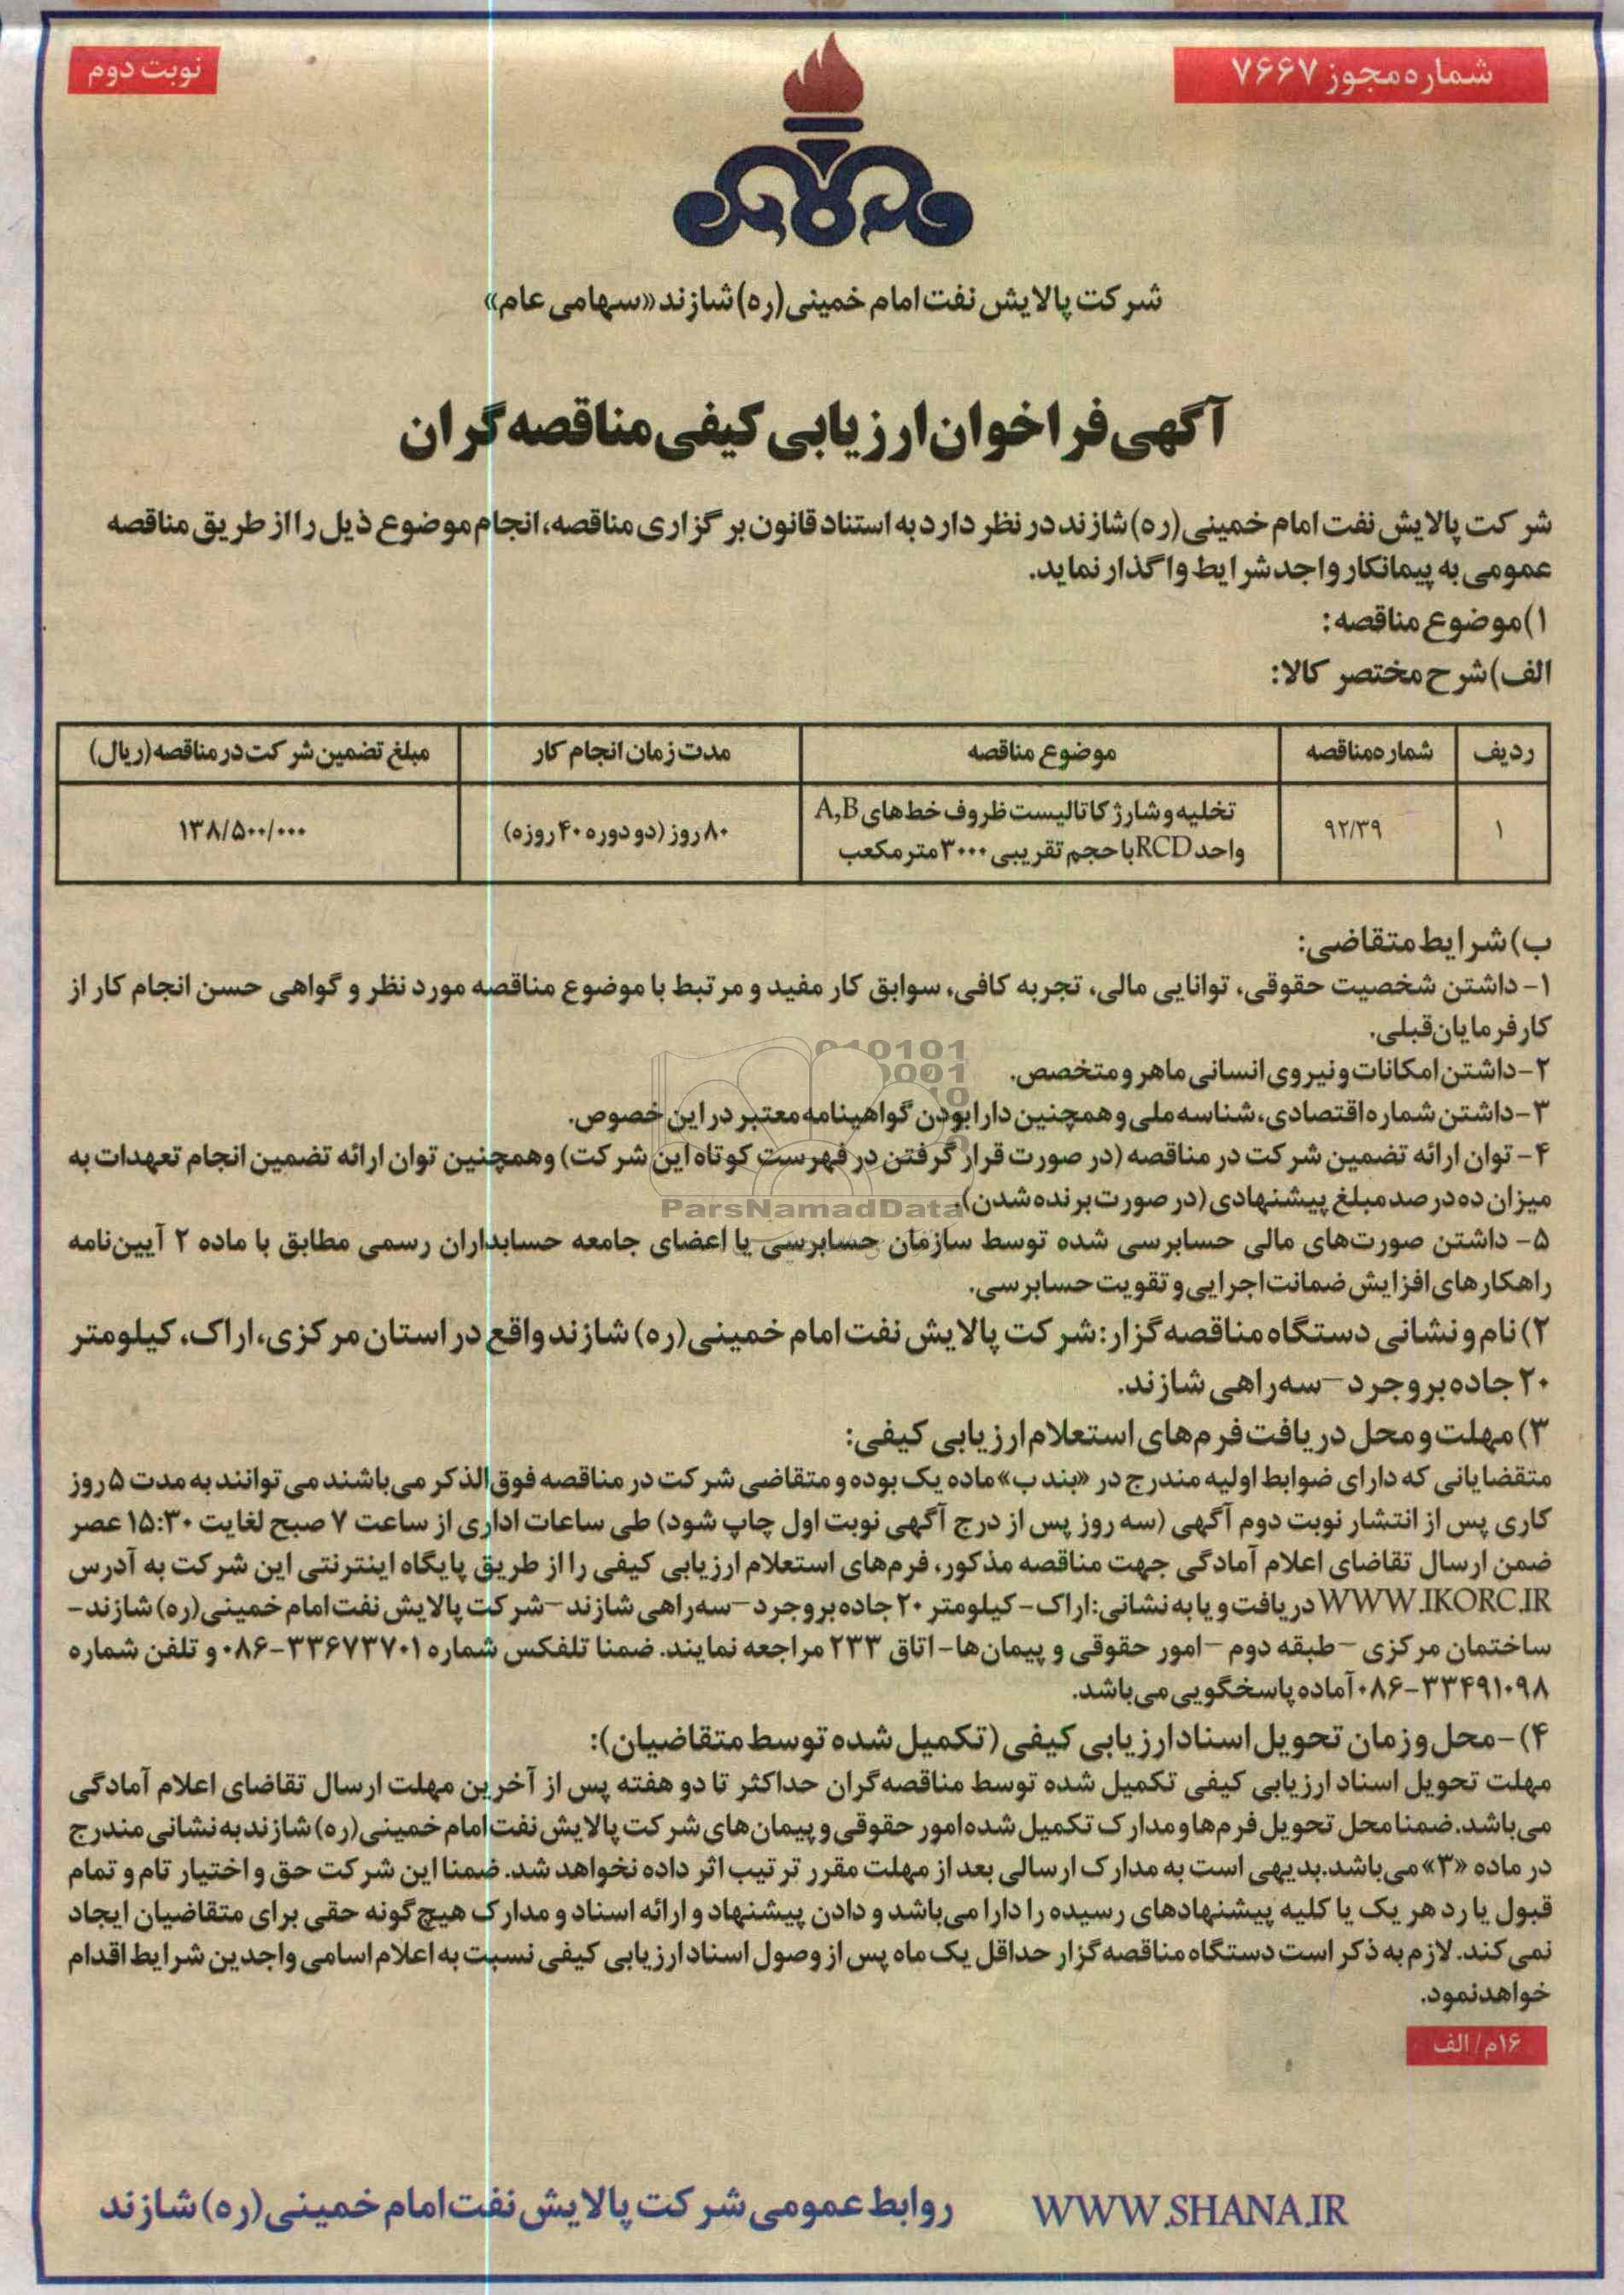 شماره مجوز ۷۶۶۷
نوبت دوم
شرکت پالایش نفت امام خمینی (ره) شازند «سهامی عام»
آگهی فراخوان ارزیابی کیفی مناقصه گران
شرکت پالایش نفت امام خمینی (ره) شازند در نظر دارد به استناد قانون برگزاری مناقصه، انجام موضوع ذیل را از طریق مناقصه
عمومی به پیمانکار واجد شرایط واگذار نماید.
۱) موضوع مناقصه:
الف) شرح مختصر کالا:
ردیف شماره مناقصه موضوع مناقصه مدت زمان انجام کار مبلغ تضمین شرکت در مناقصه (ریال)
۱ ۹۲/۳۹ تخلیه و شارژ کاتالیست ظروف خط های A,B ۸۰ روز (دو دوره ۴۰ روزه) ۱۳۸/۵۰۰/۰۰۰
واحد RCD با حجم تقریبی ۳۰۰۰ متر مکعب
ب) شرایط متقاضی:
۱- داشتن شخصیت حقوقی، توانایی مالی، تجربه کافی، سوابق کار مفید و مرتبط با موضوع مناقصه مورد نظر و گواهی حسن انجام کار از
کارفرمایان قبلی.
۲- داشتن امکانات و نیروی انسانی ماهر و متخصص.
۳- داشتن شماره اقتصادی، شناسه ملی و همچنین دارا بودن گواهینامه معتبر در این خصوص.
۴- توان ارائه تضمین شرکت در مناقصه (در صورت قرار گرفتن در فهرست کوتاه این شرکت) وهمچنین توان ارائه تضمین انجام تعهدات به
میزان ده درصد مبلغ پیشنهادی (در صورت برنده شدن).
ParsNamadData
۵- داشتن صورت‌های مالی حسابرسی شده توسط سازمان حسابرسی یا اعضای جامعه حسابداران رسمی مطابق با ماده ۲ آیین‌نامه
راهکارهای افزایش ضمانت اجرایی و تقویت حسابرسی.
۲) نام و نشانی دستگاه مناقصه گزار: شرکت پالایش نفت امام خمینی (ره) شازند واقع در استان مرکزی، اراک، کیلومتر
۲۰ جاده بروجرد – سه راهی شازند.
۳) مهلت و محل دریافت فرم‌های استعلام ارزیابی کیفی:
متقضایانی که دارای ضوابط اولیه مندرج در «بند ب» ماده یک بوده و متقاضی شرکت در مناقصه فوق الذکر می‌باشند می توانند به مدت ۵ روز
کاری پس از انتشار نوبت دوم آگهی (سه روز پس از درج آگهی نوبت اول چاپ شود) طی ساعات اداری از ساعت ۷ صبح لغایت ۱۵:۳۰ عصر
ضمن ارسال تقاضای اعلام آمادگی جهت مناقصه مذکور، فرم‌های استعلام ارزیابی کیفی را از طریق پایگاه اینترنتی این شرکت به آدرس
WWW.IKORC.IR دریافت و یا به نشانی: اراک – کیلومتر ۲۰ جاده بروجرد – سه راهی شازند – شرکت پالایش نفت امام خمینی (ره) شازند –
ساختمان مرکزی – طبقه دوم – امور حقوقی و پیمان‌ها – اتاق ۲۳۳ مراجعه نمایند. ضمنا تلفکس شماره ۳۳۶۷۳۷۰۱-۰۸۶ و تلفن شماره
۳۳۴۹۱۰۹۸-۰۸۶ آماده پاسخگویی می باشد.
۴)- محل و زمان تحویل اسناد ارزیابی کیفی (تکمیل شده توسط متقاضیان):
مهلت تحویل اسناد ارزیابی کیفی تکمیل شده توسط مناقصه گران حداکثر تا دو هفته پس از آخرین مهلت ارسال تقاضای اعلام آمادگی
می باشد. ضمنا محل تحویل فرم‌ها و مدارک تکمیل شده امور حقوقی و پیمان‌های شرکت پالایش نفت امام خمینی (ره) شازند به نشانی مندرج
در ماده «۳» می باشد. بدیهی است به مدارک ارسالی بعد از مهلت مقرر ترتیب اثر داده نخواهد شد. ضمنا این شرکت حق و اختیار تام و تمام
قبول یا رد هر یک یا کلیه پیشنهادهای رسیده را دارا می‌باشد و دادن پیشنهاد و ارائه اسناد و مدارک هیچ گونه حقی برای متقاضیان ایجاد
نمی کند. لازم به ذکر است دستگاه مناقصه گزار حداقل یک ماه پس از وصول اسناد ارزیابی کیفی نسبت به اعلام اسامی واجدین شرایط اقدام
خواهد نمود.
۱۶م/الف
WWW.SHANA.IR روابط عمومی شرکت پالایش نفت امام خمینی (ره) شازند